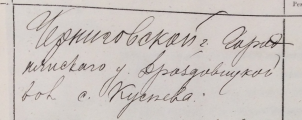 Черниговской г. Город
нянскаго у. Дроздовицкой
вол. с. Куснева.